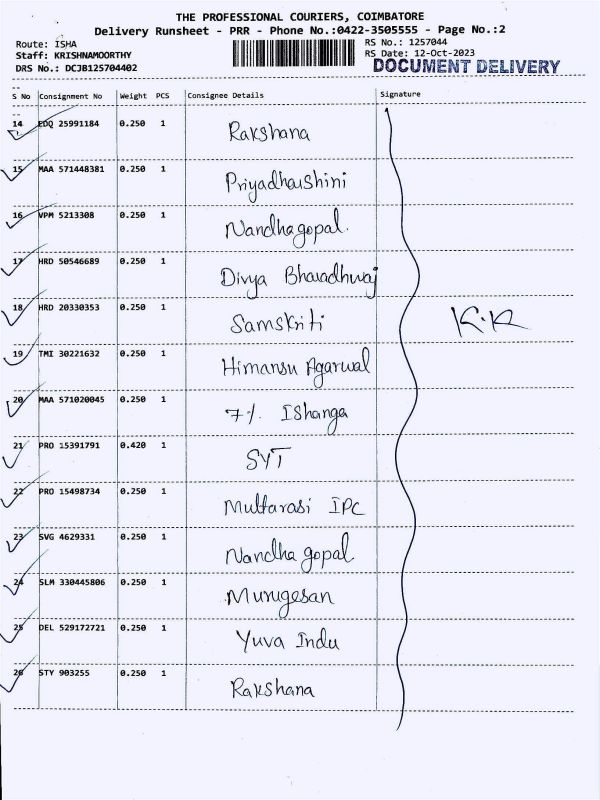 THE PROFESSIONAL COURIERS, COIMBATORE
Delivery Runsheet - PRR - Phone No.:0422-3505555 - Page No.:2
Route: ISHA RS No.: 1257044
Staff: KRISHNAMOORTHY RS Date: 12-Oct-2023
DRS No.: DCJB125704402 DOCUMENT DELIVERY
S No Consignment No Weight PCS Consignee Details Signature
14 EDQ 25991184 0.250 1 Rakshana
15 MAA 571448381 0.250 1 Priyadharshini
16 VPM 5213308 0.250 1 Nandhagopal.
17 HRD 50546689 0.250 1 Divya Bharadhwaj
18 HRD 20330353 0.250 1 Samskriti K.K
19 TMI 30221632 0.250 1 Himansu Agarwal
20 MAA 571020045 0.250 1 7%. IShanga
21 PRO 15391791 0.420 1 SYT
22 PRO 15498734 0.250 1 Multarasi IPC
23 SVG 4629331 0.250 1 Nandha gopal
24 SLM 330445806 0.250 1 Murugesan
25 DEL 529172721 0.250 1 Yuva Indu
26 STY 903255 0.250 1 Rakshana